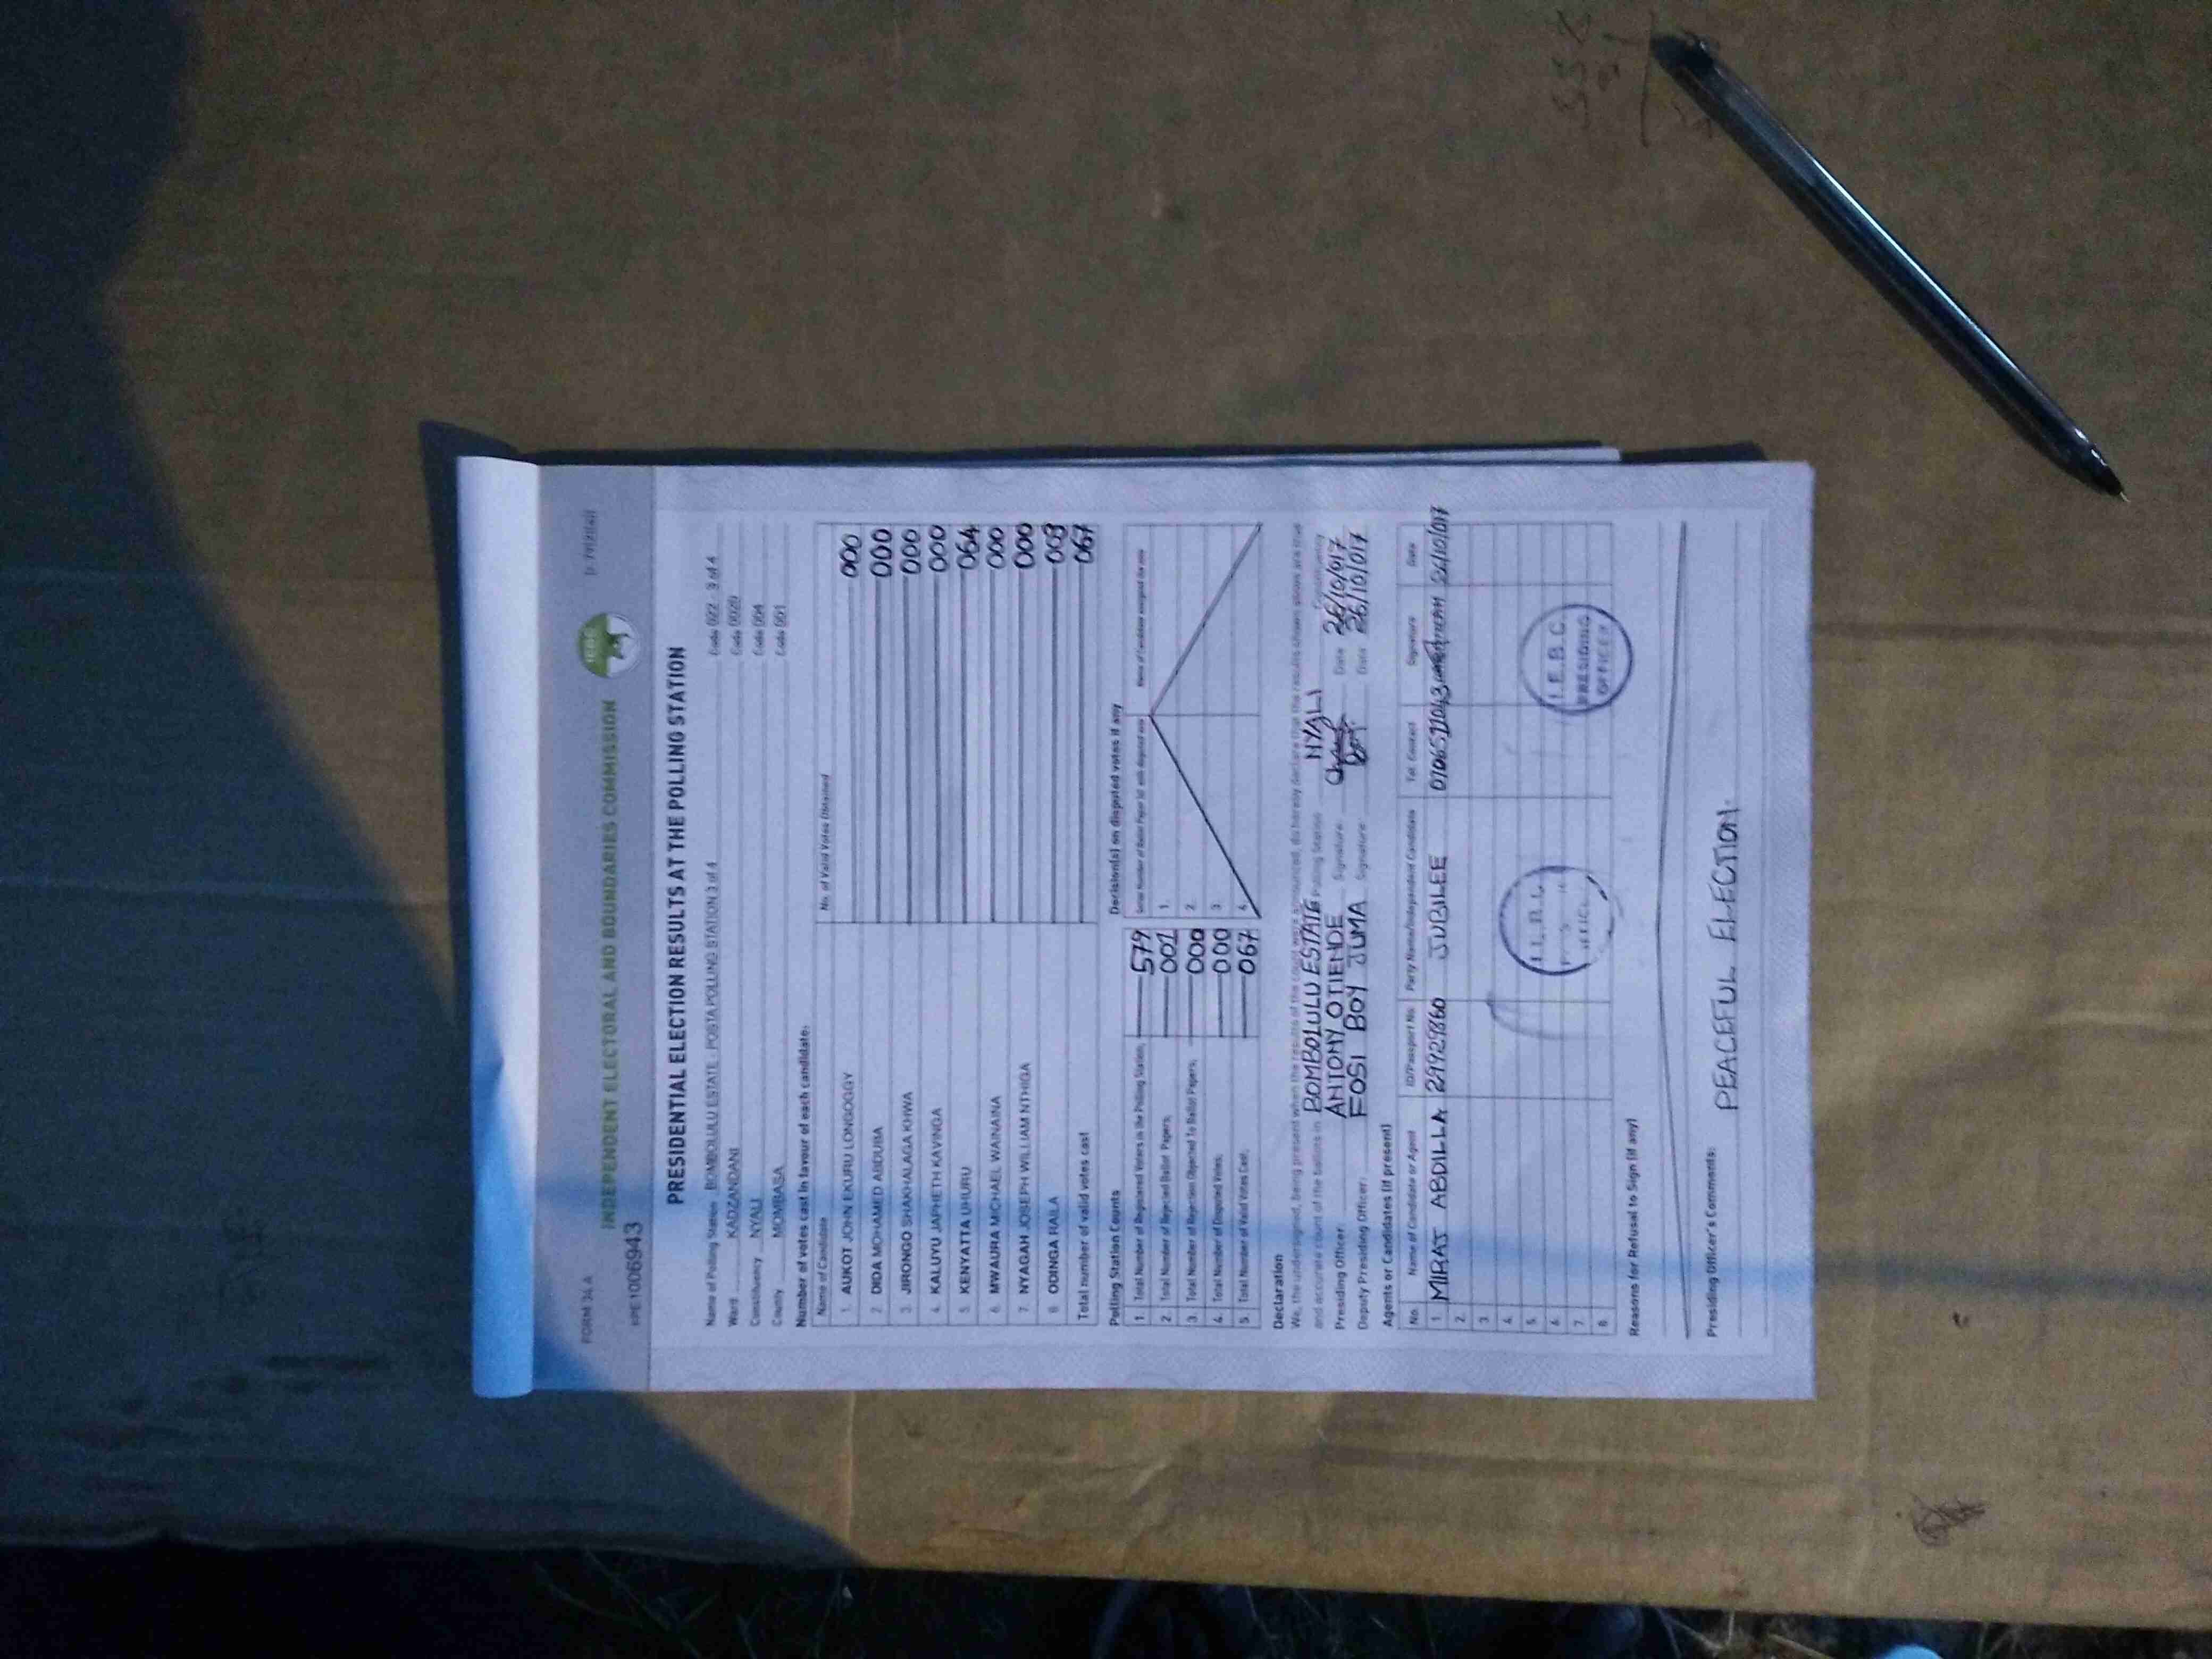 FORM 34 A
INDEPENDENT ELECTORAL AND BOUNDARIES COMMISSION
PRESIDENTIAL ELECTION RESULTS AT THE POLLING STATION
Name of Polling Station BOMBOLULU ESTATE - POSTA POLLING STATION 3 of 4 Code 022 3 of 4
Ward KADZANDANI Code 0020
Constituency NYALI Code 004
County MOMBASA Code 001
Number of votes cast in favour of each candidate:
Name of Candidate No. of Valid Votes Obtained
1. AUKOT JOHN EKURU LONGOGGY 000
2. DIDA MOHAMED ABDUBA 000
3. JIRONGO SHAKHALAGA KHWA 000
4. KALUYU JAPHETH KAVINGA 000
5. KENYATTA UHURU 064
6. MWAURA MICHAEL WAINAINA 000
7. NYAGAH JOSEPH WILLIAM NTHIGA 000
8. ODINGA RAILA 003
Total number of valid votes cast 067
Polling Station Counts
1. Total Number of Registered Voters in the Polling Station; 579
2. Total Number of Rejected Ballot Papers; 001
3. Total Number of Rejection Objected To Ballot Papers; 000
4. Total Number of Disputed Votes; 000
5. Total Number of Valid Votes Cast; 067
Decision(s) on disputed votes if any
1.
2.
3.
4.
Declaration
We, the undersigned, being present when the results of the count were announced, do hereby declare that the results shown above are a true
and accurate count of the ballots in BOMBOLULU ESTATE Polling Station NYALI Constituency
Presiding Officer: ANTONY OTIENDE Signature Date 26/10/017
Deputy Presiding Officer: FOSI BOY JUMA Signature Date 26/10/017
Agents or Candidates (if present)
No. Name of Candidate or Agent ID/Passport No. Party Name/Independent Candidate Tel. Contact Signature Date
1 MIRAJ ABDILLA 29929860 JUBILEE 26/10/017
2.
3
4
5.
6.
7.
8.
I.E.B.C.
PRESIDING
OFFICER
Reasons for Refusal to Sign (if any)
Presiding Officer's Comments:
PEACEFUL ELECTION.